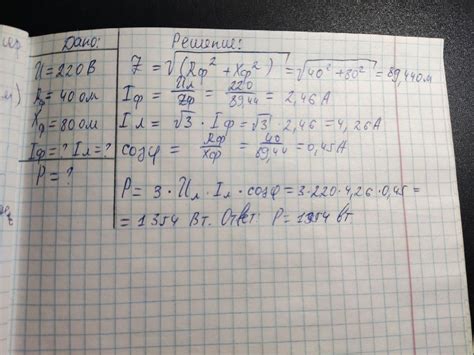 Дано:
U = 220 В
Rф = 40 ом
Xф = 80 ом
Iф = ? Iл = ?
P = ?
Решение:
Z = √(Rф² + Xф²) = √40² + 80² = 89,44 ом
Iф = Uл / Zф = 220 / 89.44 = 2,46 А
Iл = √3 · Iф = √3 · 2,46 = 4,26 А
cosφ = Rф / Xф = 40 / 89,44 = 0,45 А
P = 3 · Uл · Iл · cosφ = 3·220·4,26·0,45 =
= 1354 Вт. Ответ: P = 1354 вт.